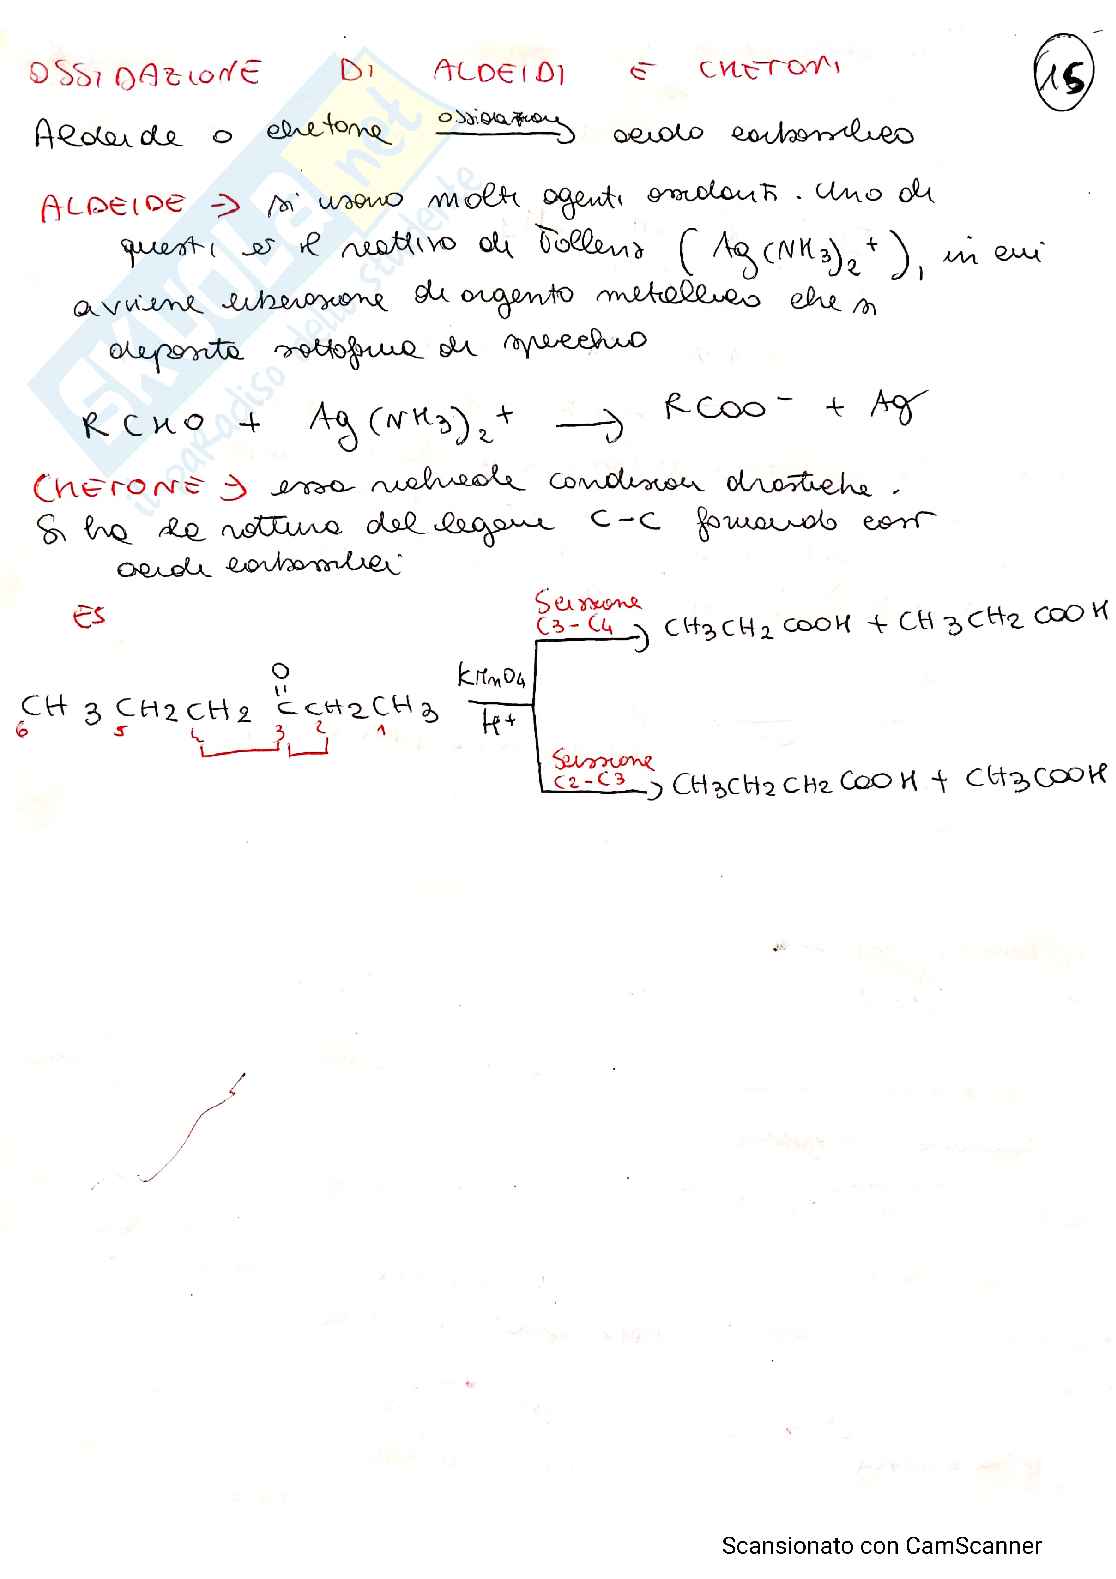 OSSIDAZIONE DI ALDEIDI E CHETONI
15
Aldeide o chetone ossidazione acido carbossilico
ALDEIDE → si usano molti agenti ossidanti. Uno di
questi è il reattivo di Tollens (Ag(NH3)2+), in cui
avviene liberazione di argento metallico che si
deposita sottoforma di specchio
RCHO + Ag(NH3)2+ → RCOO- + Ag
CHETONE → essa richiede condizioni drastiche.
Si ha la rottura del legame C-C formando così
acidi carbossilici
ES
Scissione
C3-C4 → CH3CH2COOH + CH3CH2COOH
O
KMnO4
CH3CH2CH2CCH2CH3
H+
6 5 4 3 2 1
Scissione
C2-C3 → CH3CH2CH2COOH + CH3COOH
SKUOLA.net
il paradiso dello studente
Scansionato con CamScanner